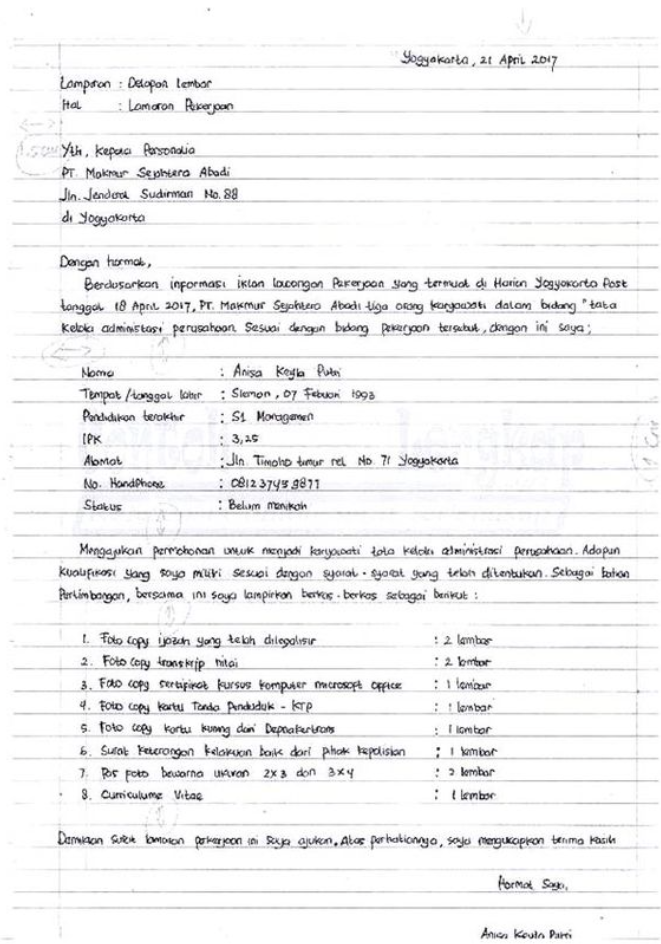 Yogyakarta, 21 April 2017
Lampiran : Delapan lembar
Hal : Lamaran Pekerjaan
1.5 cm
Yth, Kepala Personalia
PT. Makmur Sejahtera Abadi
Jln. Jenderal Sudirman No. 88
di Yogyakarta
Dengan hormat,
Berdasarkan informasi iklan lowongan Pekerjaan yang termuat di Harian Yogyakarta Post
tanggal 18 April 2017, PT. Makmur Sejahtera Abadi tiga orang karyawati dalam bidang "tata
kelola administasi perusahaan. Sesuai dengan bidang Pekerjaan tersebut, dengan ini saya;
Nama : Anisa Keyla Putri
Tempat / tanggal lahir : Sleman, 07 Febuari 1993
Pendidikan terakhir : S1 Managemen
IPK : 3,25
Alamat : Jln. Timoho timur rel No. 71 Yogyakarta
No. HandPhone :
Status : Belum menikah
Contoh Lengkap
Mengajukan permohonan untuk menjadi karyawati tata kelola administrasi perusahaan. Adapun
kualifikasi yang saya miliki sesuai dengan syarat-syarat yang telah ditentukan. Sebagai bahan
Pertimbangan, bersama ini saya lampirkan berkas-berkas sebagai berikut :
1. Foto copy ijazah yang telah dilegalisir : 2 lembar
2. Foto copy transkrip nilai : 2 lembar
3. Foto copy sertifikat kursus komputer microsoft office : 1 lembar
4. Foto copy kartu Tanda Penduduk - KTP : 1 lembar
5. Foto copy kartu kuning dari Depnakertrans : 1 lembar
6. Surat keterangan kelakuan baik dari pihak kepolisian : 1 lembar
7. Pas foto bewarna ukuran 2x3 dan 3x4 : 2 lembar
8. Curriculume Vitae : 1 lembar
Demikian surat lamaran pekerjaan ini saya ajukan, Atas perhatiannya, saya mengucapkan terima kasih
Hormat Saya,
Anisa Keyla Putri